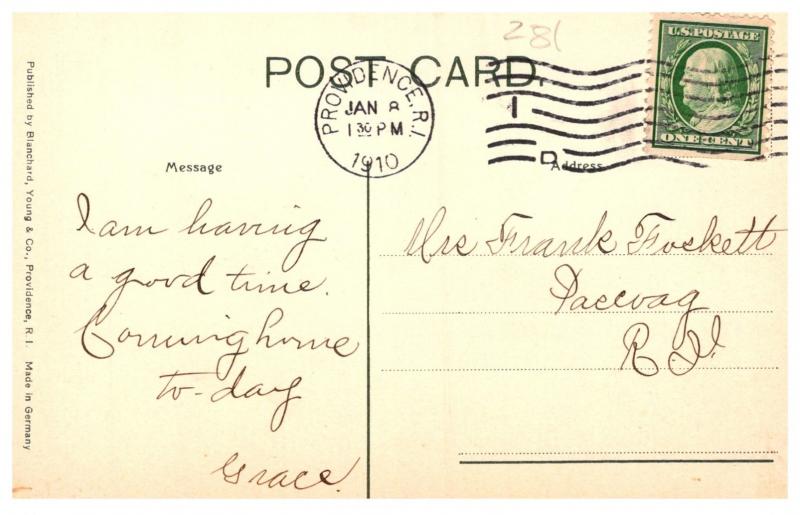 281
U.S. POSTAGE
ONE · CENT
POST CARD.
PROVIDENCE, R.I.
JAN 8
1 30 PM
1910
1
D
Message
Address
I am having
a good time.
Coming home
to-day
Grace.
Mrs Frank Foskett
Pascoag
R. I.
Published by Blanchard, Young & Co., Providence, R. I. Made in Germany